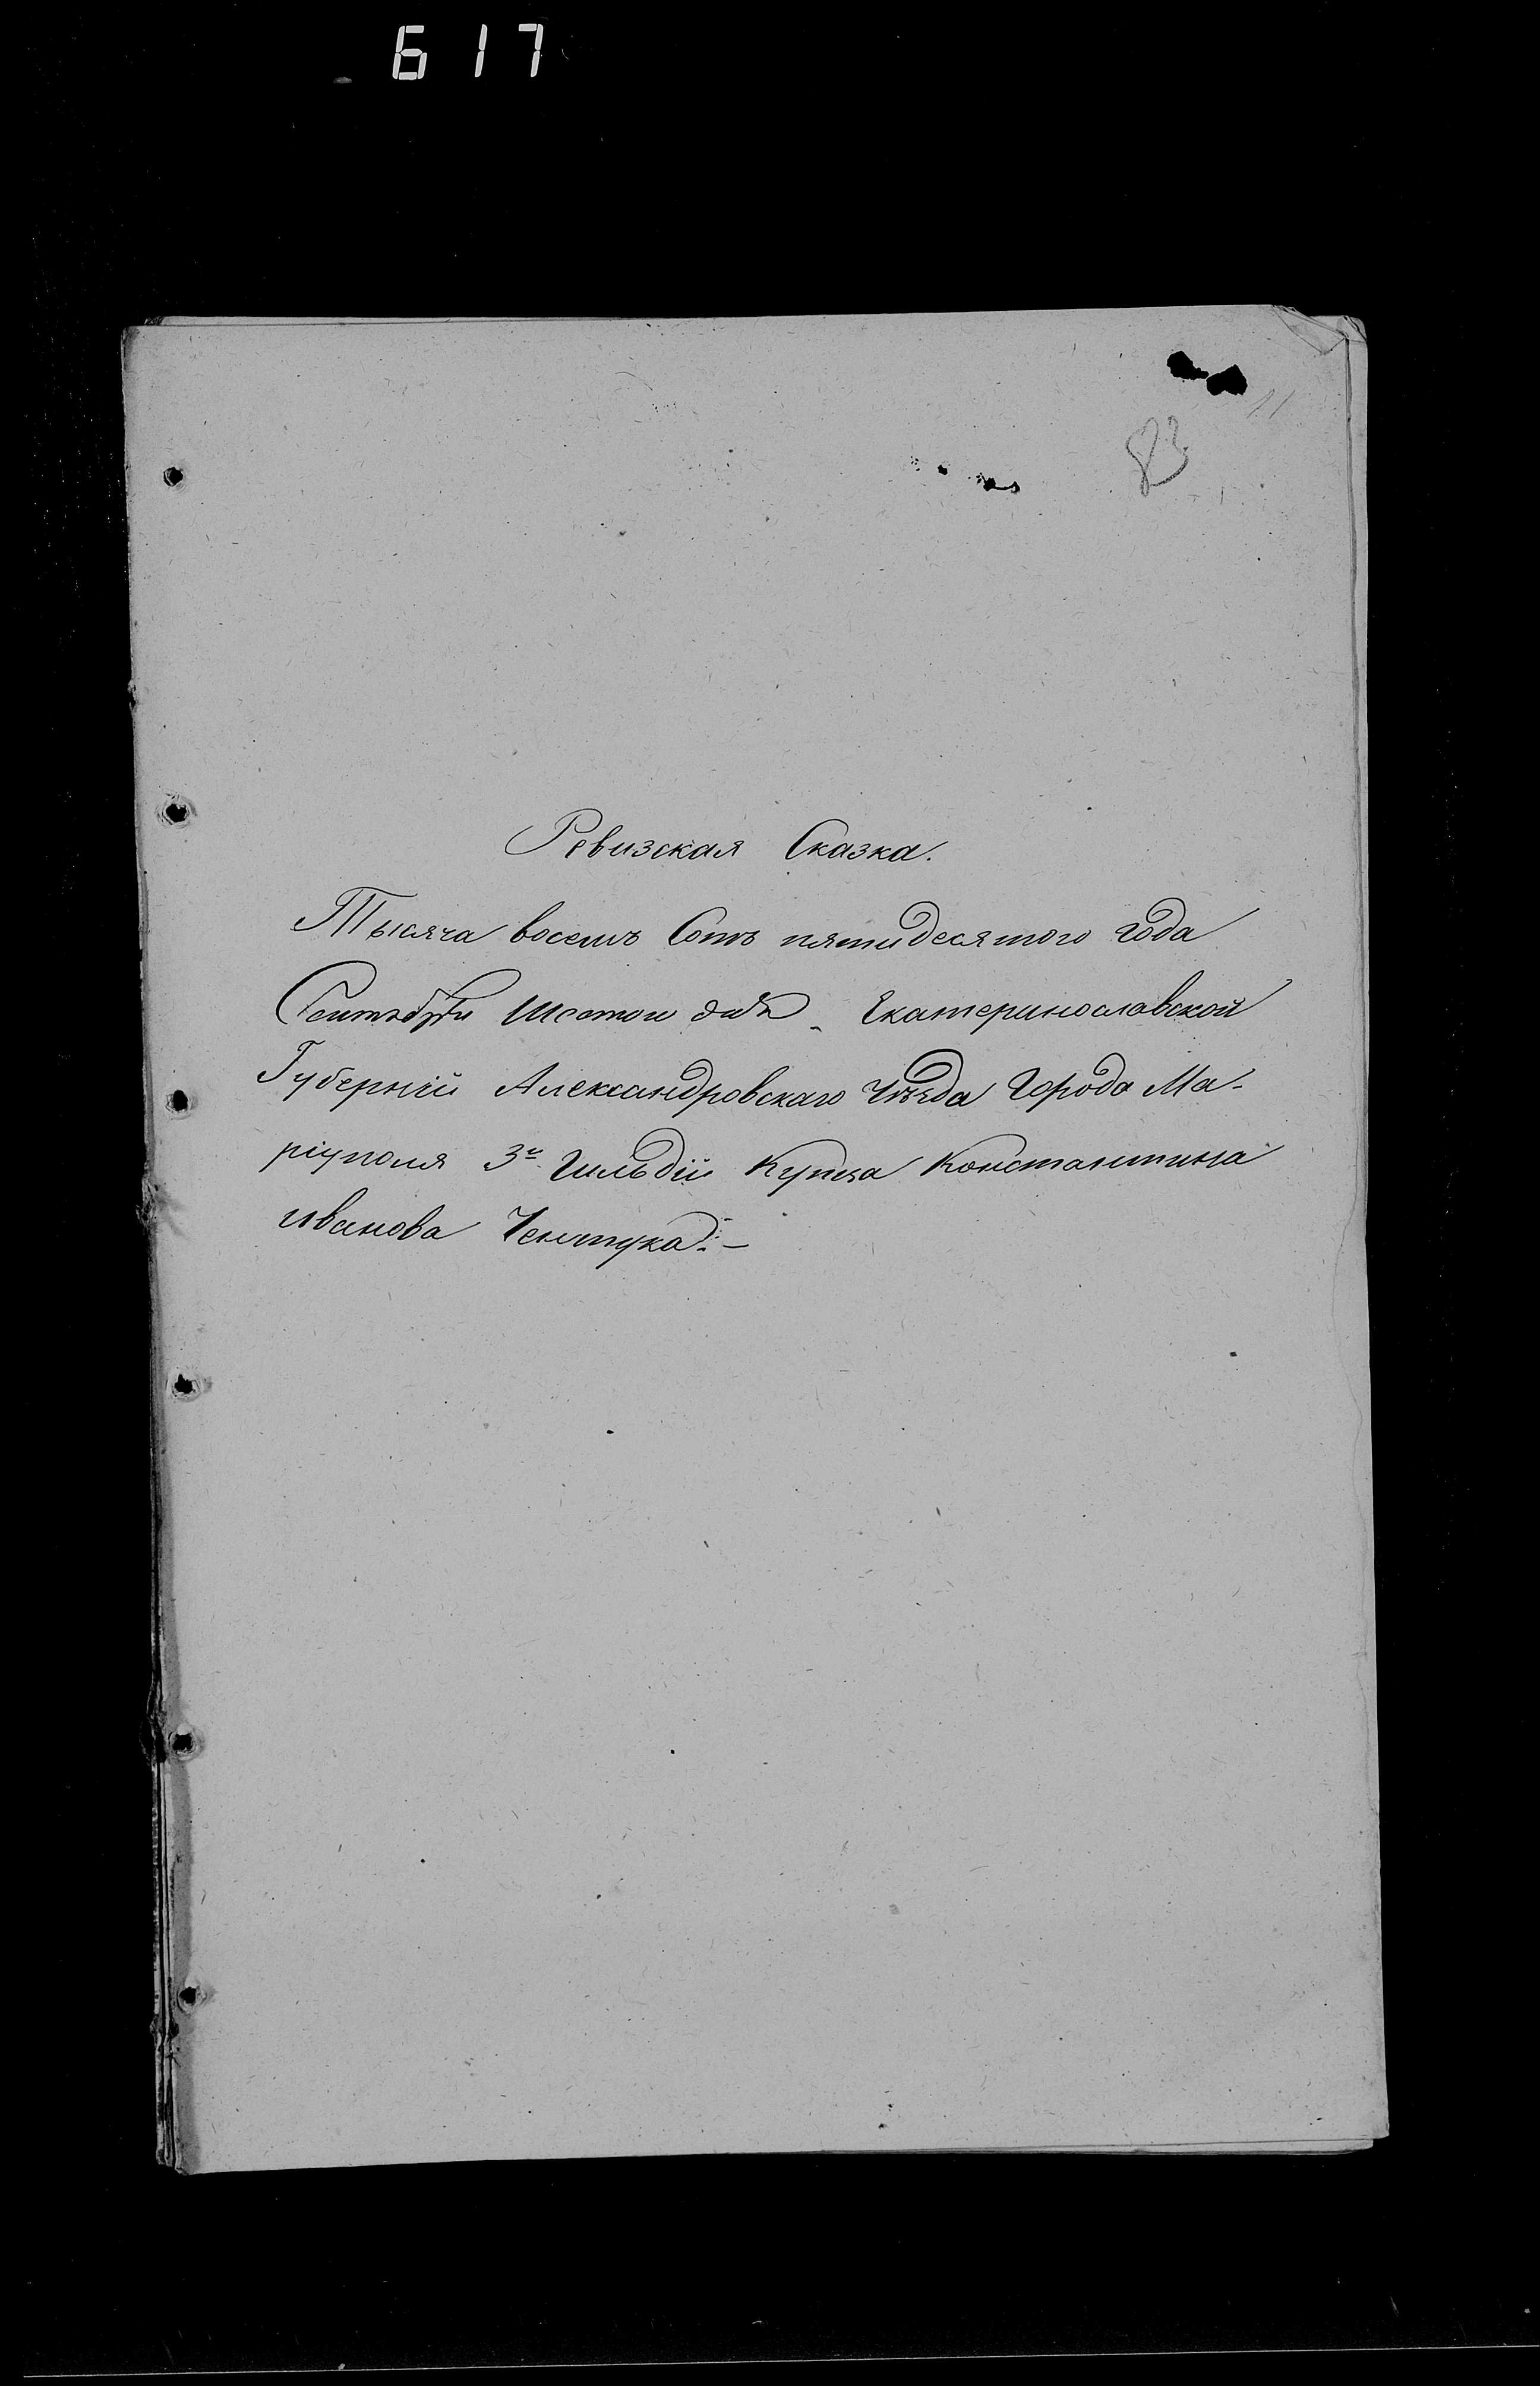 617
11
83
Ревизская Сказка.
Тысяча восемъ Сотъ пятидесятого года
Сентября Шестои дня Екатеринославской
Губерніи Александровскаго Уѣзда Города Ма-
ріуполя 3й Гильдіи Купца Константина
Иванова Чентука.